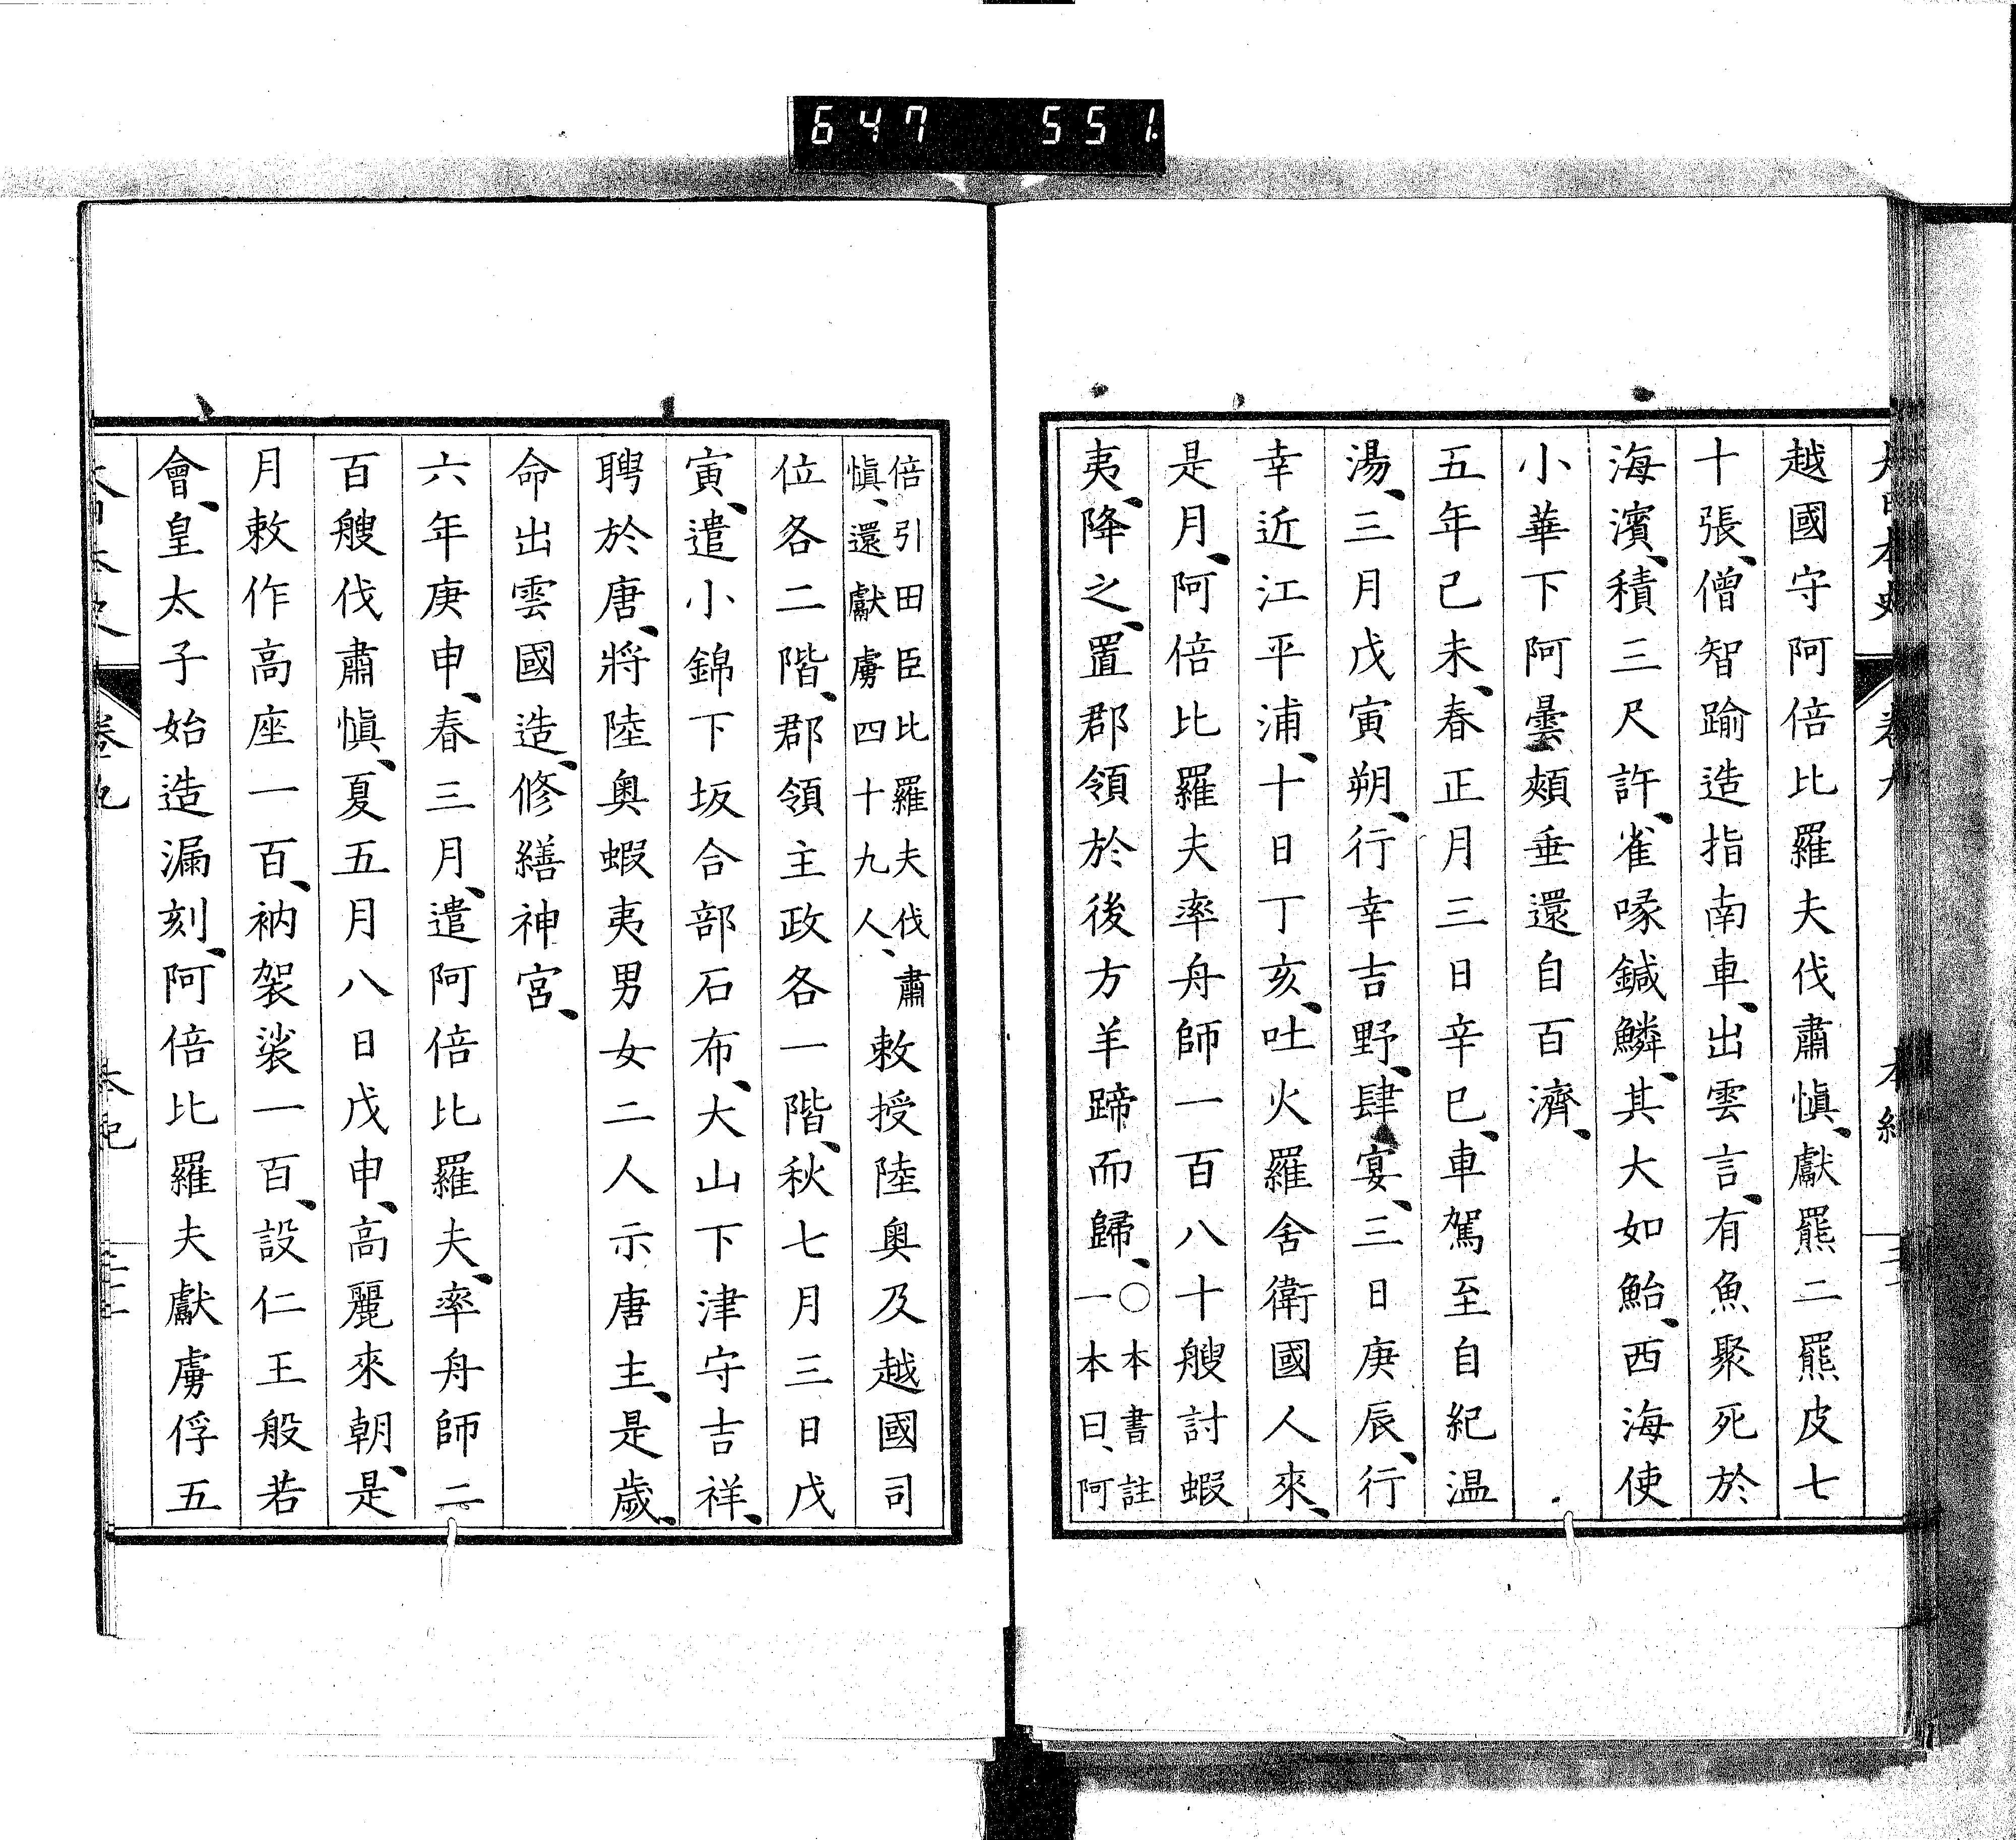 647 551
越國守阿倍比羅夫伐肅愼、獻羆二羆皮七
十張、僧智踰造指南車、出雲言、有魚聚死於
海濱、積三尺許、雀喙鍼鱗、其大如鮐、西海使
小華下阿曇頰垂還自百濟、
五年己未、春正月三日辛巳、車駕至自紀温
湯、三月戊寅朔、行幸吉野、肆宴、三日庚辰、行
幸近江平浦、十日丁亥、吐火羅舍衛國人來、
是月、阿倍比羅夫率舟師一百八十艘討蝦
夷、降之、置郡領於後方羊蹄而歸、○本書註一本曰、阿
倍引田臣比羅夫伐肅愼、還獻虜四十九人、敕授陸奧及越國司
位各二階、郡領主政各一階、秋七月三日戊
寅、遣小錦下坂合部石布、大山下津守吉祥、
聘於唐、將陸奧蝦夷男女二人示唐主、是歲、
命出雲國造、修繕神宮、
六年庚申、春三月、遣阿倍比羅夫、率舟師二
百艘伐肅愼、夏五月八日戊申、高麗來朝、是
月敕作高座一百、衲袈裟一百、設仁王般若
會、皇太子始造漏刻、阿倍比羅夫獻虜俘五